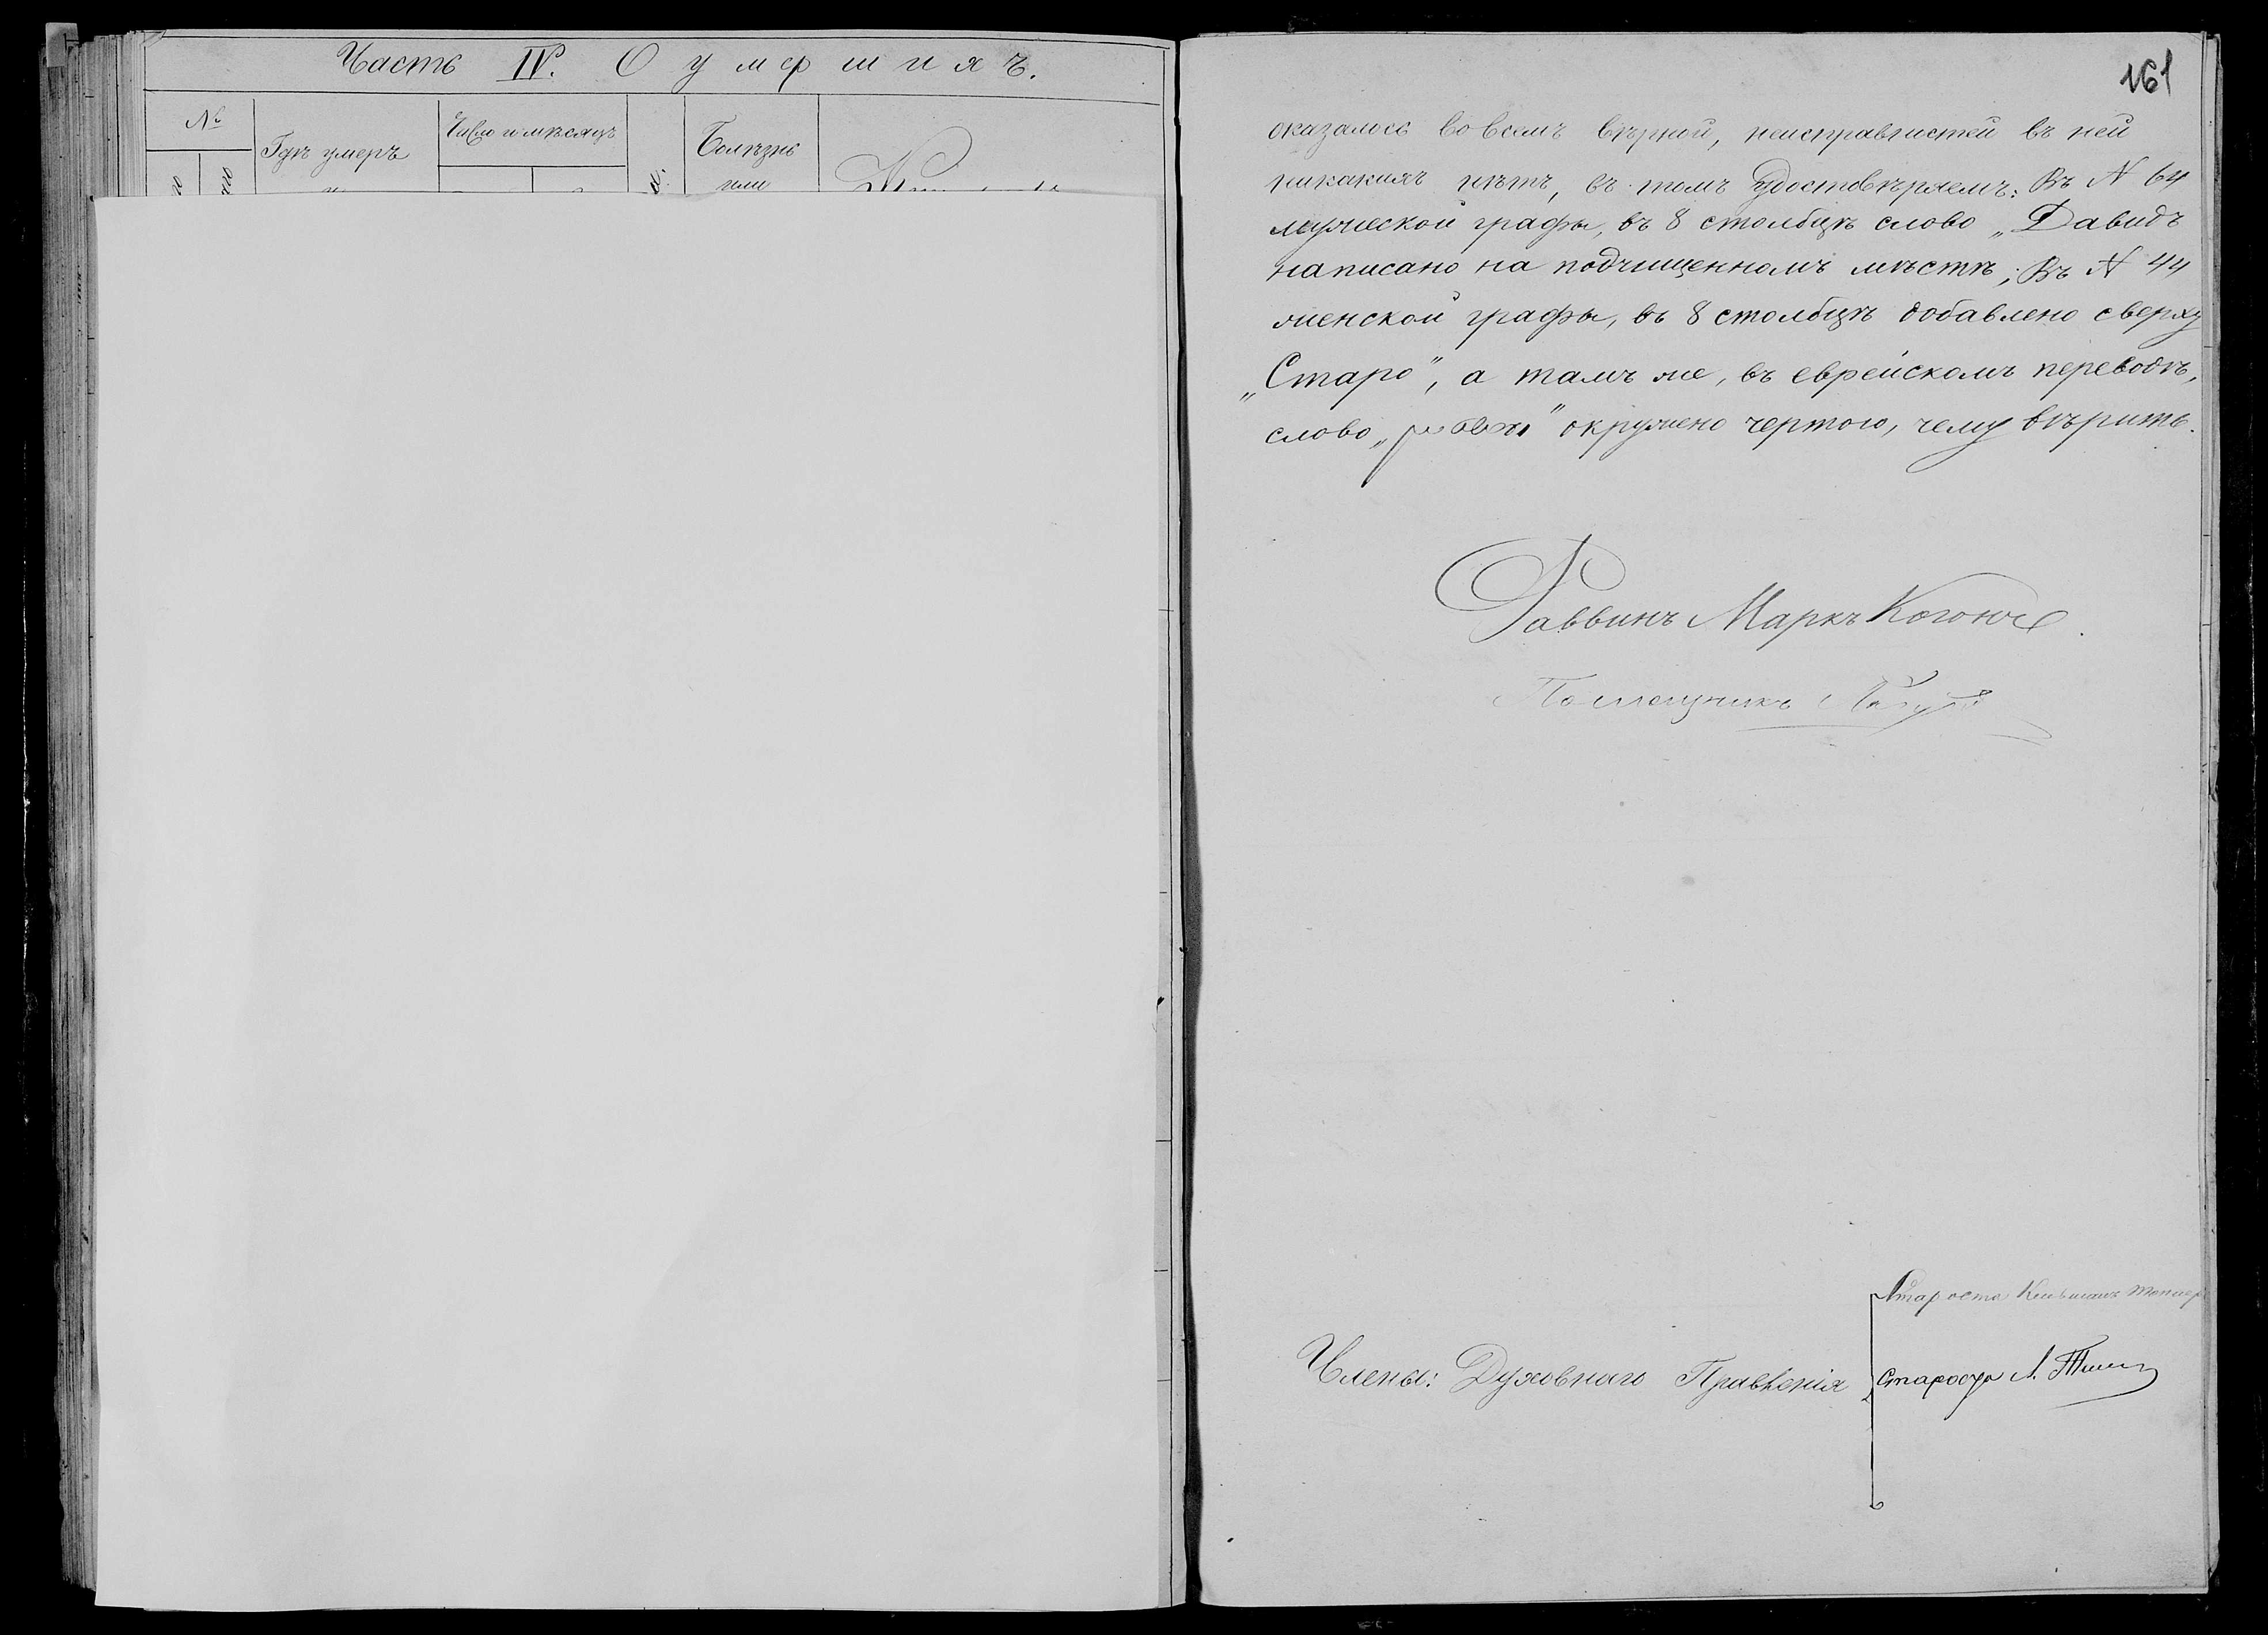 Часть IV. О умершихъ.
№
Гдѣ умеръ
Число и мѣсяцъ
Болѣзнь
или
161
оказалось во всемъ вѣрной, неисправностей въ ней
никакихъ нѣтъ, въ томъ удостовѣряемъ: Въ № 64
мужеской графы, въ 8 столбцѣ слово „Давидъ
написано на подчищенномъ мѣстѣ; Въ № 44
женской графы, въ 8 столбцѣ добавлено сверху
„Старо", а тамъ же, въ еврейскомъ переводѣ,
слово „ " окружено чертою, чему вѣрить.
Раввинъ Маркъ
Помощникъ
Староста
Члены: Духовнаго Правленія
Староста Л.